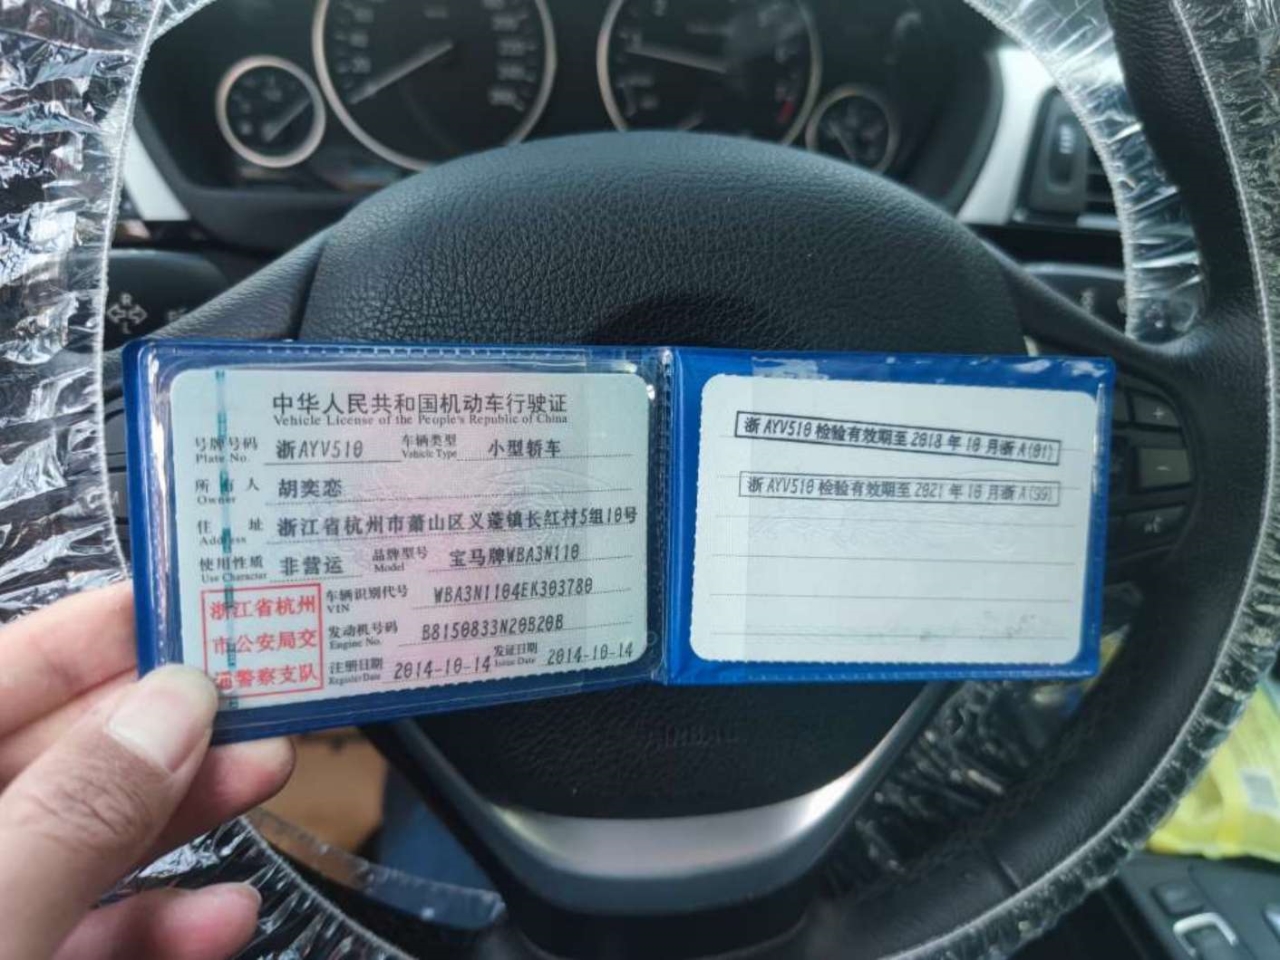 中华人民共和国机动车行驶证
Vehicle License of the People's Republic of China
号牌号码 浙AYV510 车辆类型 小型轿车
Plate No. Vehicle Type
所有人 胡奕恋
Owner
住址 浙江省杭州市萧山区义蓬镇长红村5组10号
Address
使用性质 非营运 品牌型号 宝马牌WBA3N110
Use Character Model
浙江省杭州
市公安局交
通警察支队
车辆识别代号 WBA3N1104EK303780
VIN
发动机号码 B8150833N20B20B
Engine No.
注册日期 2014-10-14 发证日期 2014-10-14
Register Date Issue Date
浙AYV510检验有效期至2018年10月浙A(01)
浙AYV510检验有效期至2021年10月浙A(99)
AIRBAG